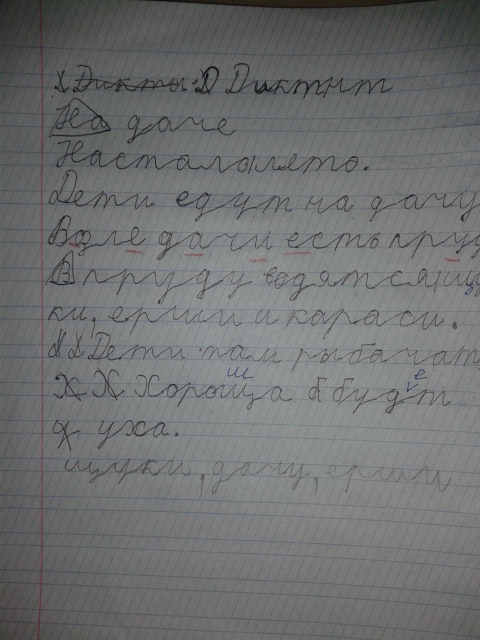 Диктнт
На даче
Насталолято.
Дети едут на дачу
Возле дачи есть пру
В пруду водятся щу
ки, ерши и караси.
Дети там рыбачат
Хороща будт
уха.
щуки, дачу, ерши